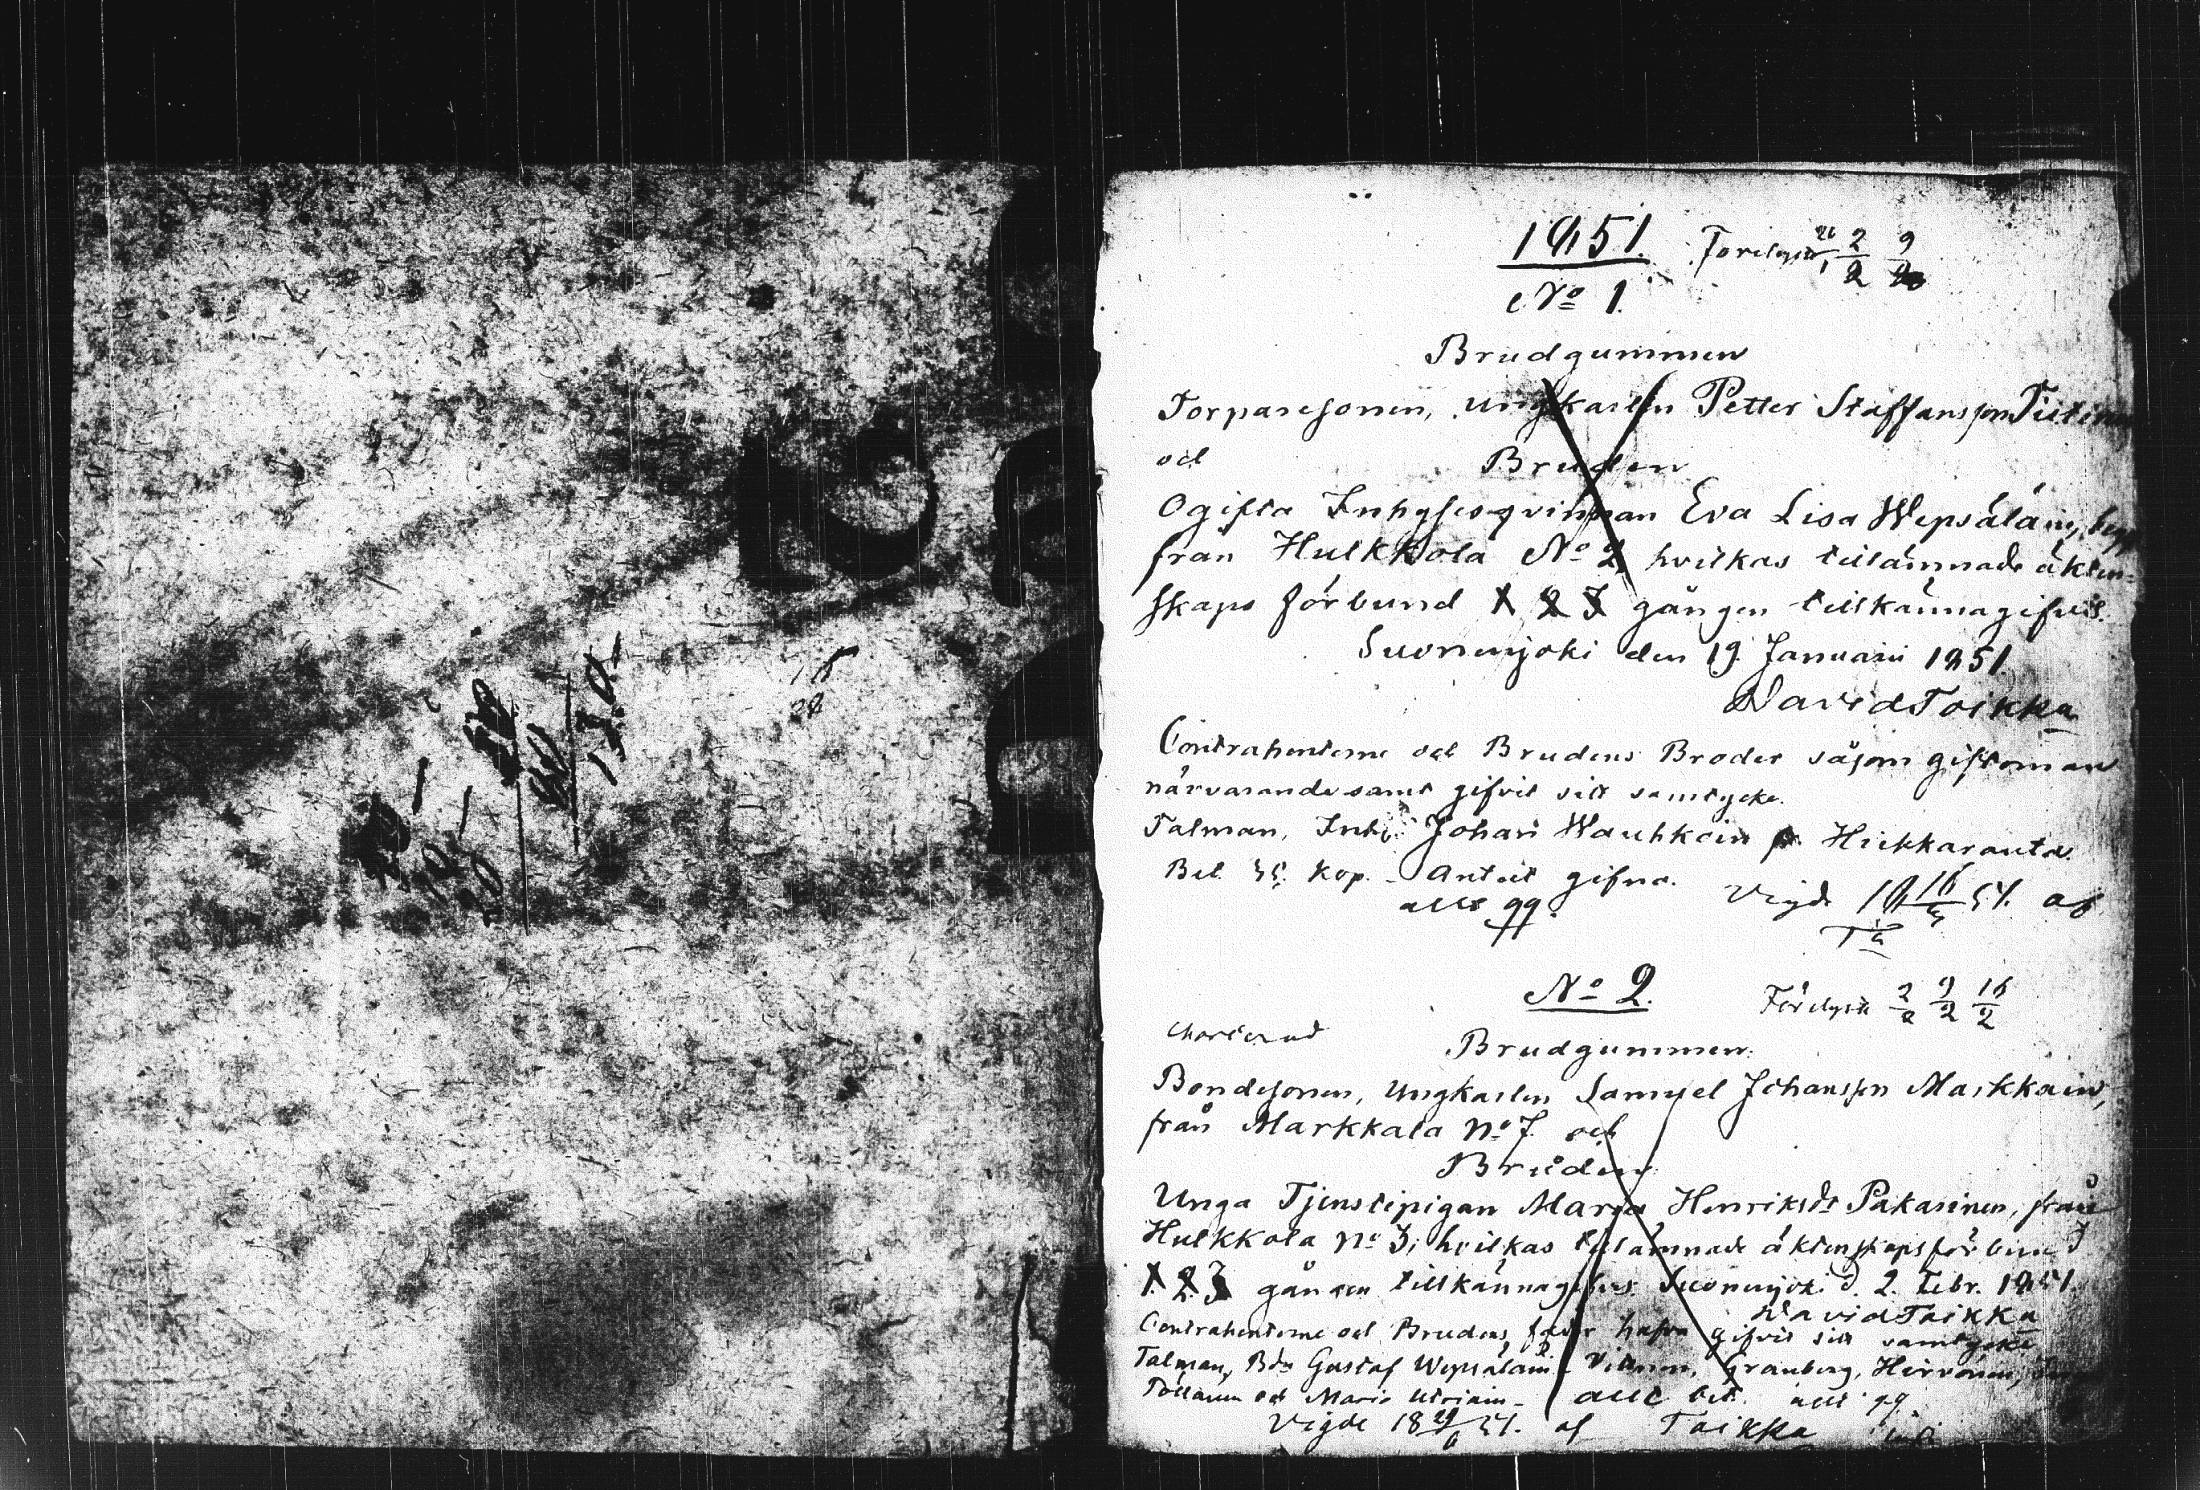 1851. Förelyst 26/1 2/2 9/2
No 1.
Brudgummen
Torparesonen, Ungkarlen Petter Staffansson
och Bruden
Ogifta Inhysesqvinnan Eva Lisa Wepsäläin,
från Hulkkola No 2, hvilkas tillämnade äkten-
skaps förbund 1 2 3 gången tillkännagifvis.
Suonenjoki den 19 Januarii 1851.
David Toikka
Contrahenterne och Brudens Broder såsom giftoman
närvarande samt gifvit sitt samtycke.
Talman, Inh. Johan Wauhkoin Hiekkaranta.
Bet. 35 Kop. - Anteit gifna. Vigde 18 16/3 51. af
allt qq.
No 2. Förelyst 2/2 9/2 16/2
Brudgummen
Bondesonen, Ungkarlen Samuel Johansson Markkain,
från Markkala No 7. och
Bruden
Unga Tjenstepigan Maria Henriksdr Pakarinen, från
Hulkkola No 3, hvilkas tillämnade äktenskapsförbund
1. 2. 3 gången tillkännagifves. Suonenjoki d. 2. Febr. 1851.
David Toikka
Contrahenterne och Brudens fader hafva gifvit sitt samtycke
Talman, Bdn Gustaf Wepsäläin Granberg, Hirvonen,
och Maria allt bet. allt qq.
Vigde 18 51. af Toikka